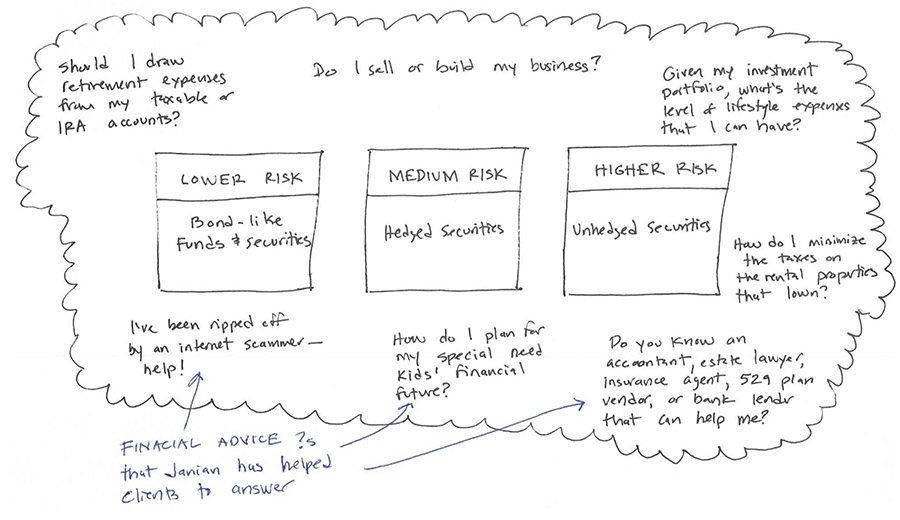 Should I draw
retirement expenses
from my taxable or
IRA accounts?
Do I sell or build my business?
Given my investment
portfolio, what's the
level of lifestyle expenses
that I can have?
LOWER RISK
Bond-like
Funds & securities
MEDIUM RISK
Hedged Securities
HIGHER RISK
Unhedged Securities
How do I minimize
the taxes on
the rental properties
that I own?
I've been ripped off
by an internet scammer—
help!
How do I plan for
my special need
kids' financial
future?
Do you know an
accountant, estate lawyer,
insurance agent, 529 plan
vendor, or bank lendr
that can help me?
FINACIAL ADVICE ?s
that Janian has helped
clients to answer